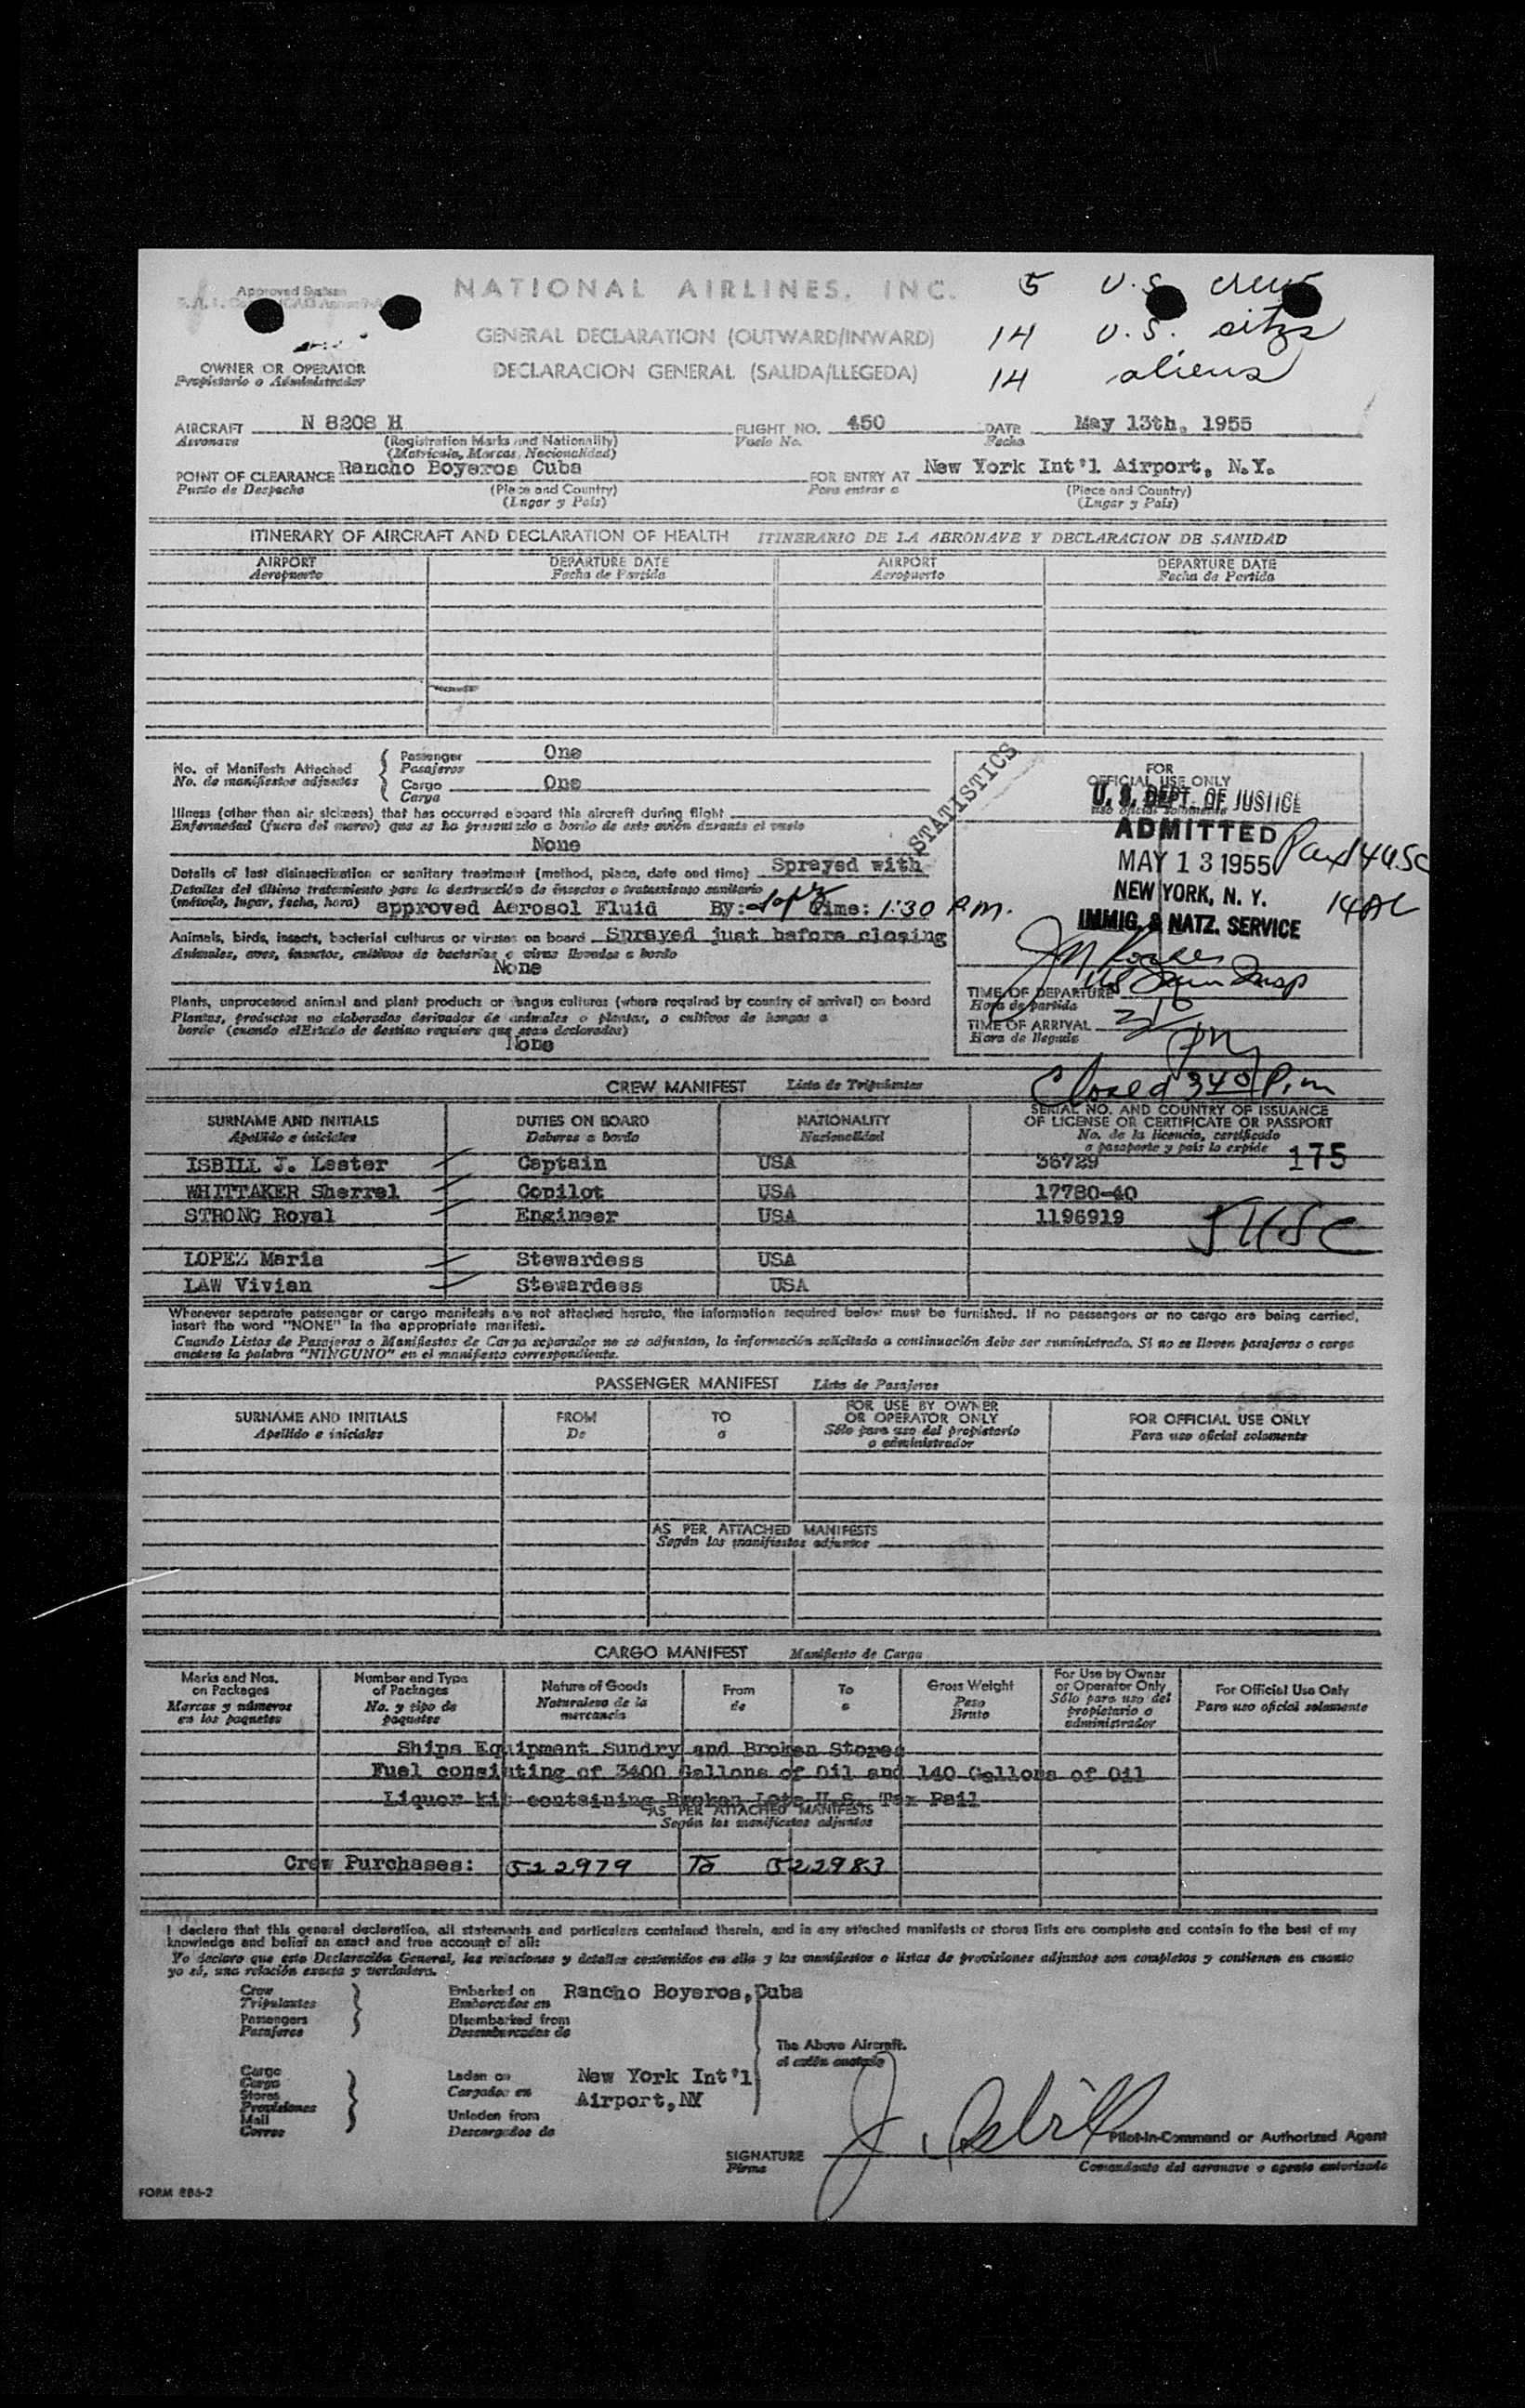 Approved System
NATIONAL AIRLINES, INC.
5 U.S. crew
GENERAL DECLARATION (OUTWARD/INWARD)
14 U.S. citzs
DECLARACION GENERAL (SALIDA/LLEGEDA)
14 aliens
OWNER OR OPERATOR
Propietario o Administrador
AIRCRAFT N 8208 H FLIGHT NO. 450 DATE May 13th, 1955
Aeronave (Registration Marks and Nationality) Vuelo No. Fecha
(Matricula, Marcas, Nacionalidad)
POINT OF CLEARANCE Rancho Boyeros Cuba FOR ENTRY AT New York Int'l Airport, N.Y.
Punto de Despacho (Place and Country) Para entrar a (Place and Country)
(Lugar y País) (Lugar y País)
ITINERARY OF AIRCRAFT AND DECLARATION OF HEALTH ITINERARIO DE LA AERONAVE Y DECLARACION DE SANIDAD
AIRPORT DEPARTURE DATE AIRPORT DEPARTURE DATE
Aeropuerto Fecha de Partida Aeropuerto Fecha de Partida
No. of Manifests Attached
No. de manifiestos adjuntos
Passenger One
Pasajeros
Cargo One
Carga
STATISTICS
FOR
OFFICIAL USE ONLY
uso oficial solamente
U. S. DEPT. OF JUSTICE
ADMITTED
MAY 13 1955
Pax 14 USC
NEW YORK, N. Y.
14 AL
IMMIG. & NATZ. SERVICE
Illness (other than air sickness) that has occurred aboard this aircraft during flight
Enfermedad (fuera del mareo) que se ha presentado a bordo de este avión durante el vuelo
None
Details of last disinsectization or sanitary treatment (method, place, date and time) Sprayed with
Detalles del último tratamiento para la destrucción de insectos o tratamiento sanitario
(método, lugar, fecha, hora) approved Aerosol Fluid By: Lopez Time: 1:30 P.M.
Animals, birds, insects, bacterial cultures or viruses on board Sprayed just before closing
Animales, aves, insectos, cultivos de bacterias o virus llevados a bordo
None
Plants, unprocessed animal and plant products or fungus cultures (where required by country of arrival) on board
Plantas, productos no elaborados derivados de animales o plantas, o cultivos de hongos a
bordo (cuando elEstado de destino requiere que sean declarados)
None
TIME OF DEPARTURE
Hora de partida
TIME OF ARRIVAL 310
Hora de llegada PM
Closed 340 P.m
CREW MANIFEST Lista de Tripulantes
SURNAME AND INITIALS DUTIES ON BOARD NATIONALITY SERIAL NO. AND COUNTRY OF ISSUANCE
OF LICENSE OR CERTIFICATE OR PASSPORT
Apellido e iniciales Deberes a bordo Nacionalidad No. de la licencia, certificado
o pasaporte y país lo expide
ISBILL J. Lester Captain USA 36729 175
WHITTAKER Sherrel Copilot USA 17780-40
STRONG Royal Engineer USA 1196919
5 USC
LOPEZ Maria Stewardess USA
LAW Vivian Stewardess USA
Whenever separate passenger or cargo manifests are not attached hereto, the information required below must be furnished. If no passengers or no cargo are being carried,
insert the word "NONE" in the appropriate manifest.
Cuando Listas de Pasajeros o Manifiestos de Carga separados no se adjuntan, la información solicitada a continuación debe ser suministrada. Si no se lleven pasajeros o carga
anotese la palabra "NINGUNO" en el manifiesto correspondiente.
PASSENGER MANIFEST Lista de Pasajeros
SURNAME AND INITIALS FROM TO FOR USE BY OWNER
OR OPERATOR ONLY FOR OFFICIAL USE ONLY
Apellido e iniciales De a Sólo para uso del propietario
o administrador Para uso oficial solamente
AS PER ATTACHED MANIFESTS
Según los manifiestos adjuntos
CARGO MANIFEST Manifiesto de Carga
Marks and Nos.
on Packages
Marcas y números
en los paquetes
Number and Type
of Packages
No. y tipo de
paquetes
Nature of Goods
Naturaleza de la
mercancía
From
de
To
a
Gross Weight
Peso
Bruto
For Use by Owner
or Operator Only
Sólo para uso del
propietario o
administrador
For Official Use Only
Para uso oficial solamente
Ships Equipment Sundry and Broken Stores
Fuel consisting of 3400 Gallons of Oil and 140 Gallons of Oil
Liquor kit containing Broken Lots U.S. Tax Pail
AS PER ATTACHED MANIFESTS
Según los manifiestos adjuntos
Crew Purchases: 522979 To 522983
I declare that this general declaration, all statements and particulars contained therein, and in any attached manifests or stores lists are complete and contain to the best of my
knowledge and belief an exact and true account of all:
Yo declaro que esta Declaración General, las relaciones y detalles contenidos en ella y los manifiestos o listas de provisiones adjuntos son completos y contienen en cuanto
yo sé, una relación exacta y verdadera.
Crew
Tripulantes
Passengers
Pasajeros
Embarked on Rancho Boyeros, Cuba
Embarcados en
Disembarked from
Desembarcados de
The Above Aircraft.
el avión anotado
Cargo
Carga
Stores
Provisiones
Mail
Correo
Laden on New York Int'l
Cargados en Airport, NY
Unladen from
Descargados de
SIGNATURE J. Isbill Pilot-in-Command or Authorized Agent
Firma Comandante del aeronave o agente autorizado
FORM 886-2